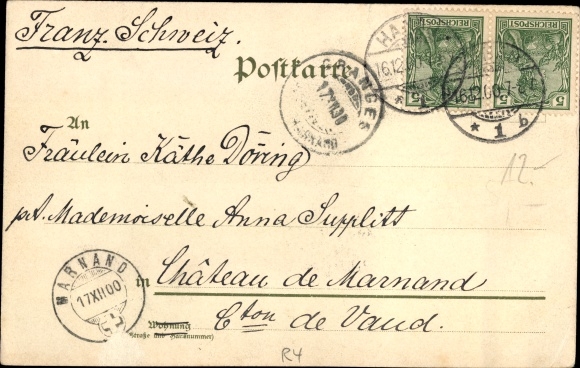 Franz. Schweiz.
Postkarte
REICHSPOST
5
REICHSPOST
5
GRANGES
17 XII 00
MARNAND
16.12.00.7-8
* 1 b
An
Fräulein Käthe Döring
12.-
p.t. Mademoiselle Anna Supplitt
MARNAND
17 XII 00
in Château de Marnand
Cton de Vaud.
Wohnung
(Straße und Hausnummer)
R4